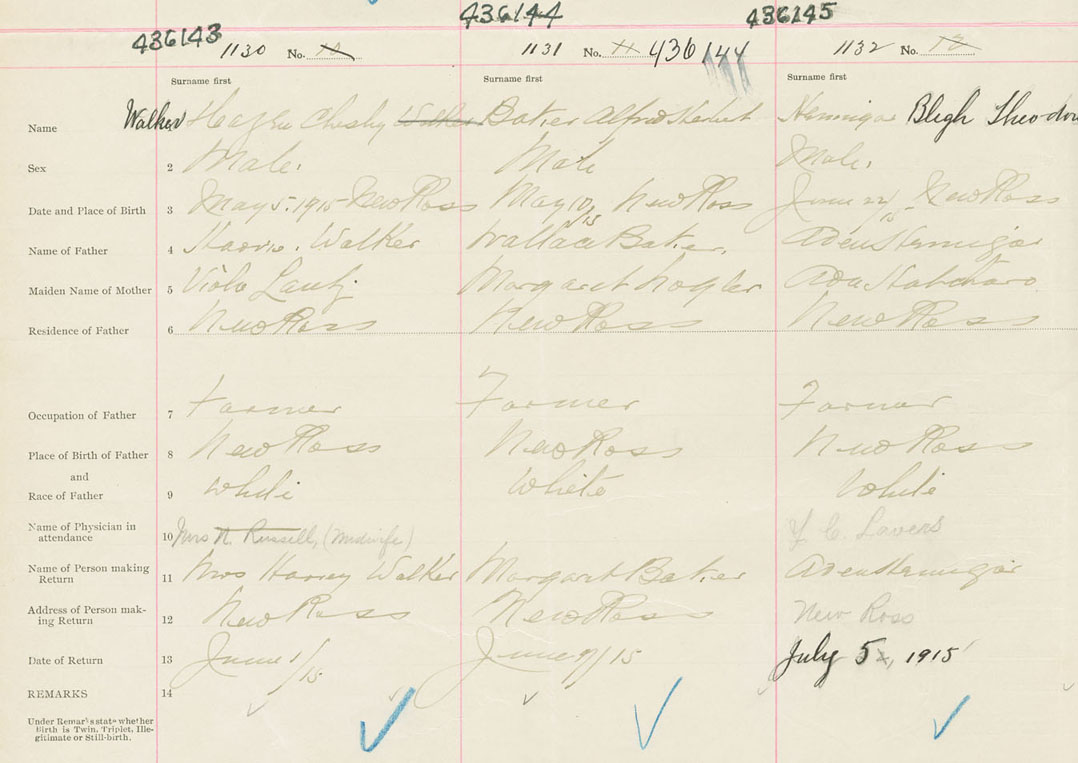 436143 436144 436145
1130 No. 1131 No. 11 436144 1132 No. 12
Surname first Surname first Surname first
Name Walker Chesley Walker Baker Alfred Herbert Hennigar Bligh Theodore
Sex 2 Male. Male Male.
Date and Place of Birth 3 May 5. 1915 New Ross May 10/15 New Ross June 22/15 New Ross
Name of Father 4 Walker Wallace Baker. Aden Hennigar
Maiden Name of Mother 5 Viola Lantz Margaret Ada
Residence of Father 6 New Ross New Ross New Ross
Occupation of Father 7 Farmer Farmer Farmer
Place of Birth of Father 8 New Ross New Ross New Ross
and
Race of Father 9 White White White
Name of Physician in
attendance 10 Mrs N. Russell, (Midwife) Lavers
Name of Person making
Return 11 Mrs Harvey Walker Margaret Baker Aden Hennigar
Address of Person mak-
ing Return 12 New Ross New Ross New Ross
Date of Return 13 June 1/15 June 9/15 July 5, 1915
REMARKS 14
Under Remarks state whether
Birth is Twin, Triplet, Ille-
gitimate or Still-birth.